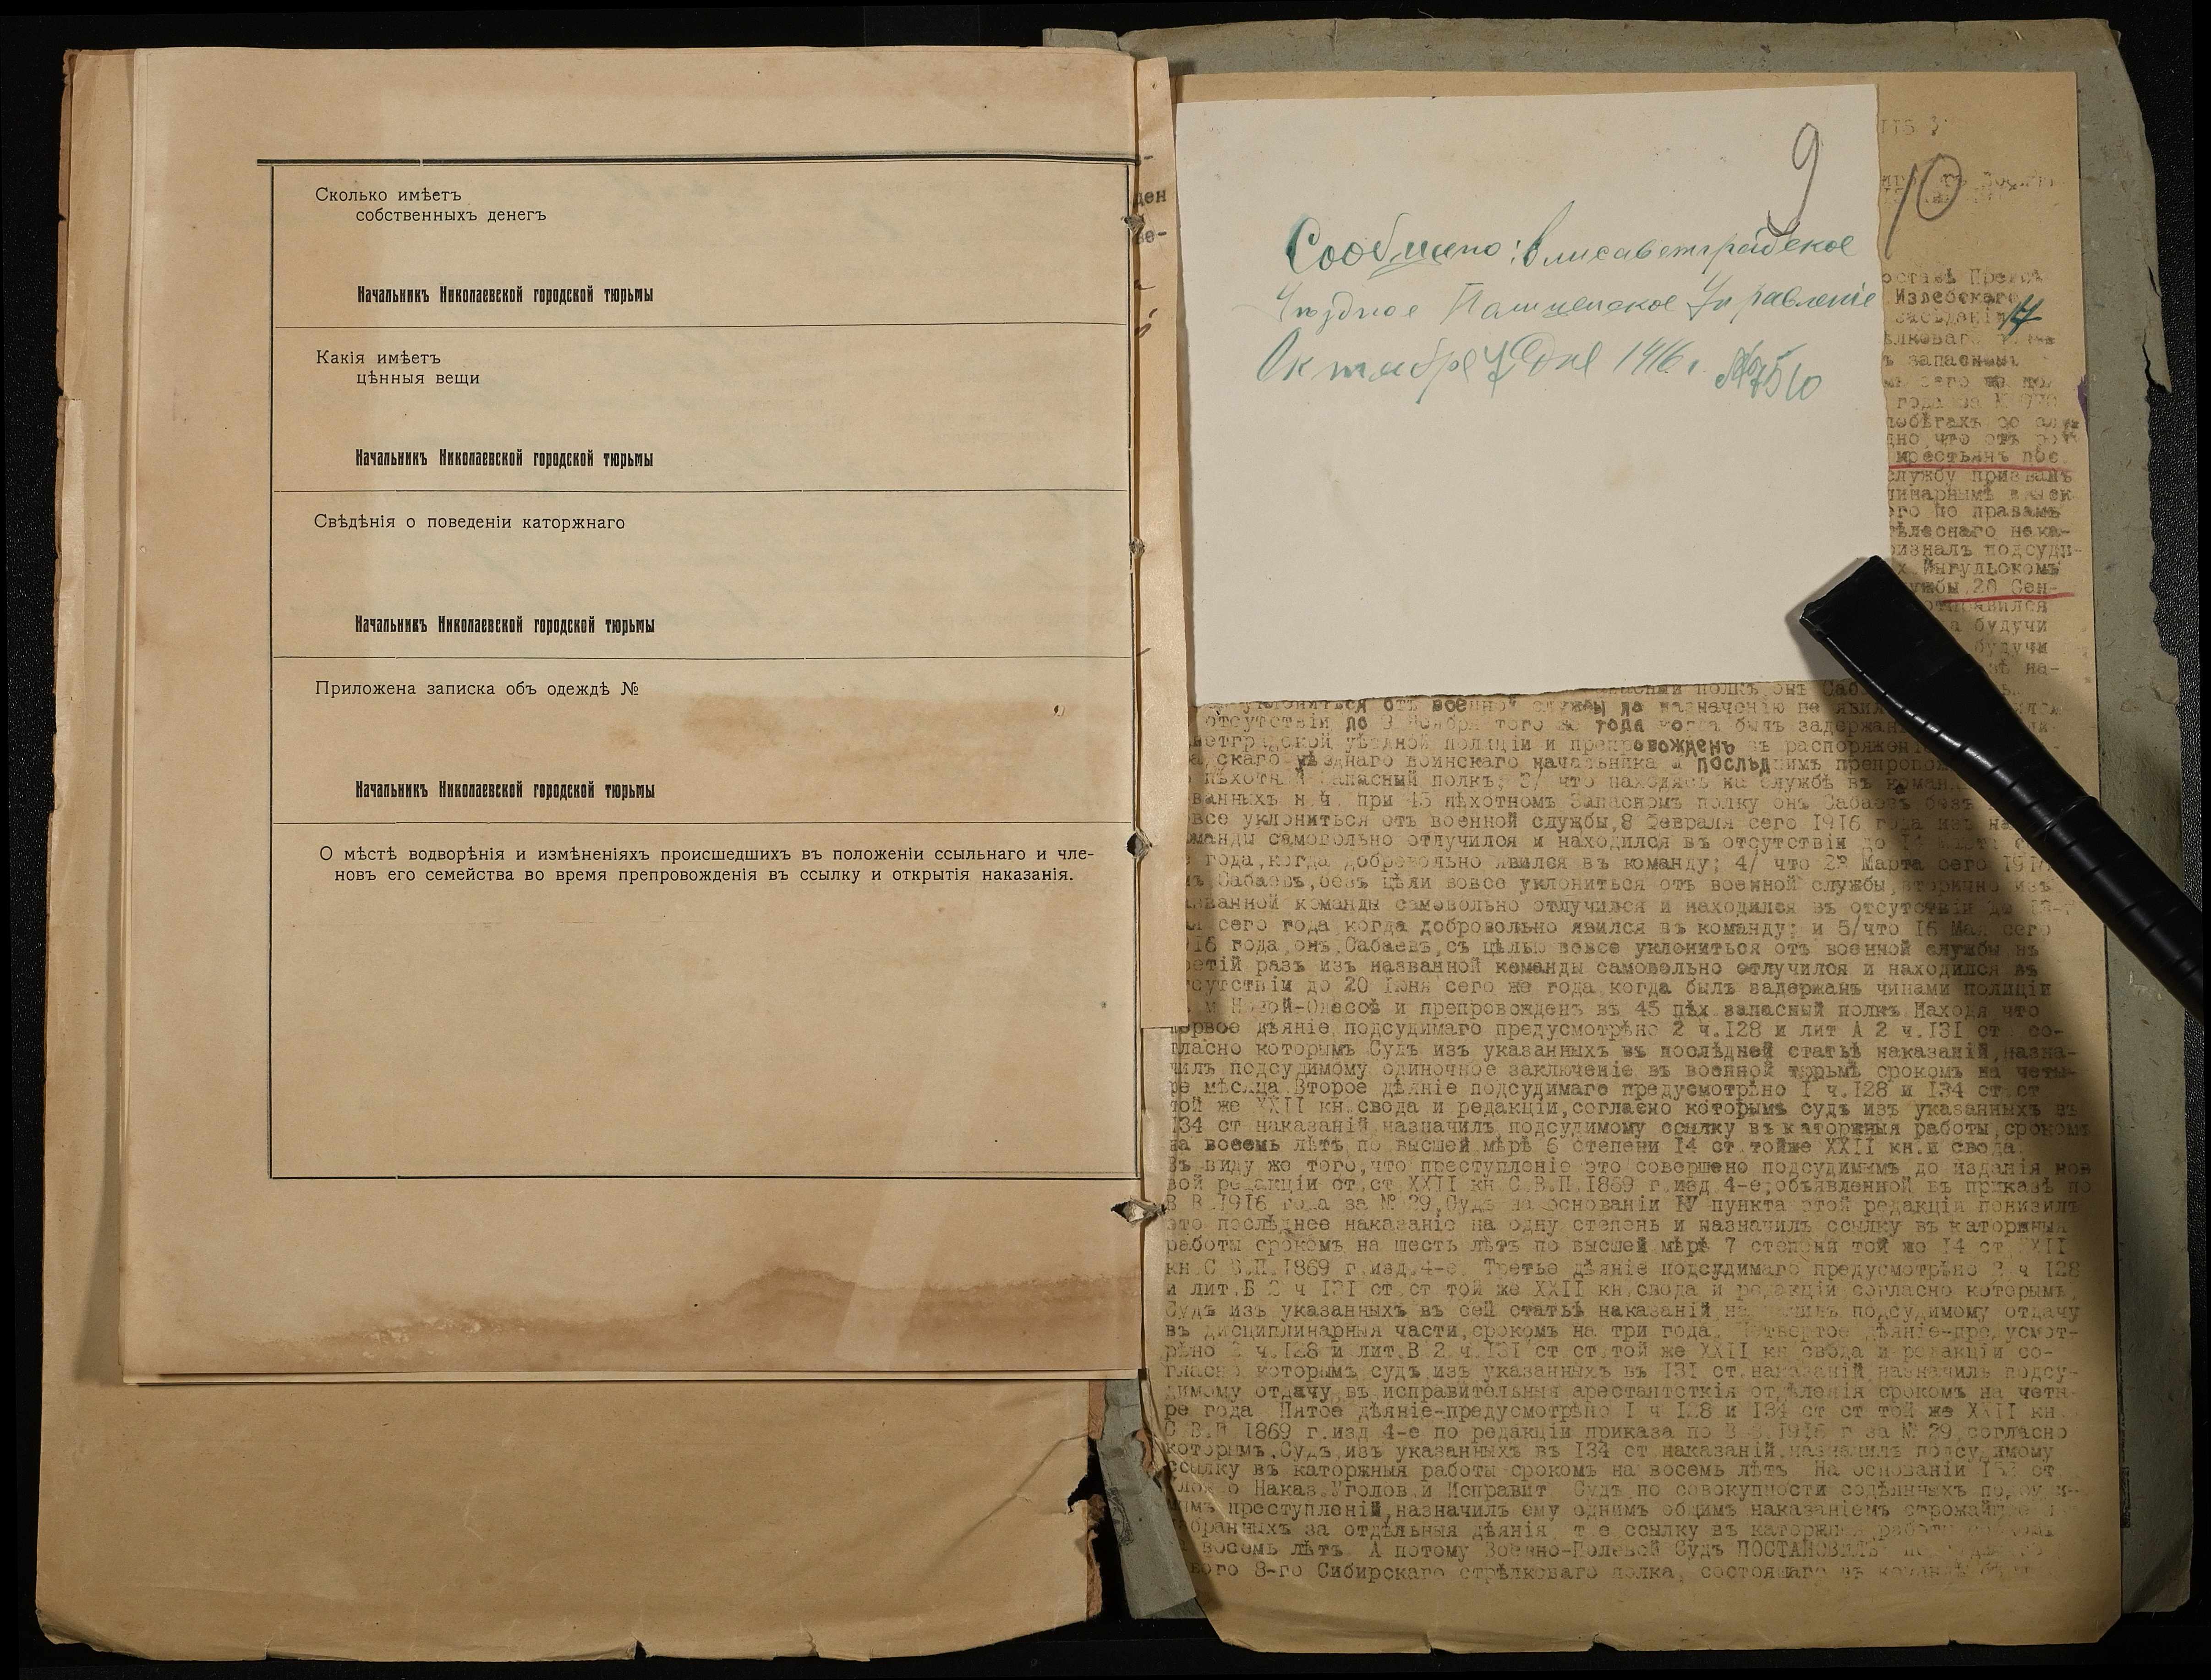 Сколько имѣетъ
собственныхъ денегъ
Начальникъ Николаевской городской тюрьмы
Какія имѣетъ
цѣнныя вещи
Начальникъ Николаевской городской тюрьмы
Свѣдѣнія о поведеніи каторжнаго
Начальникъ Николаевской городской тюрьмы
Приложена записка объ одеждѣ №
Начальникъ Николаевской городской тюрьмы
О мѣстѣ водворѣнія и измѣненіяхъ происшедшихъ въ положеніи ссыльнаго и чле-
новъ его семейства во время препровожденія въ ссылку и открытія наказанія.
ден
9
10
Сообщено: Елисаветградское
Уѣздное Полицейское Управленіе
Октября 7 дня 1916 г. №
Излебскаго
запасномъ
крестьянъ пос.
службу призванъ
по правамъ
тѣлеснаго нака-
ризналъ подсуди-
Ингульскомъ
20 Сен-
отправился
будучи
будучи
на-
полкъ онъ
уклониться отъ военной службы по назначению не
отсутствіи до 9 Ноября того же года когда былъ задержан
уѣздной полиціи и препровожденъ въ распоряжені
скаго уѣзднаго воинскаго начальника и послѣднимъ препровож
пѣхотный запасный полкъ; 3/ что находясь на службѣ въ коман
ванныхъ н.ч. при 45 пѣхотномъ Запасномъ полку онъ Сабаевъ безъ
все уклониться отъ военной службы, 8 февраля сего 1916 года изъ
манды самовольно отлучился и находился въ отсутствіи до 14 Марта
года, когда добровольно явился въ команду; 4/ что 23 Марта сего
Сабаевъ, безъ цѣли вовсе уклониться отъ военной службы, вторично изъ
званной команды самовольно отлучился и находился въ отсутствіи до
сего года когда добровольно явился въ команду; и 5/что 16 Мая сего
16 года, онъ, Сабаевъ, съ цѣлью вовсе уклониться отъ военной службы въ
ретій разъ изъ названной команды самовольно отлучился и находился въ
отсутствіи до 20 Іюня сего же года когда былъ задержанъ чинами полиціи
Новой-Одессѣ и препровожденъ въ 45 пѣх запасный полкъ Находя что
первое дѣяніе подсудимаго предусмотрѣно 2 ч.128 и лит А 2 ч.131 ст со-
гласно которымъ Судъ изъ указанныхъ въ послѣдней статьѣ наказаній, назна-
чилъ подсудимому одиночное заключеніе въ военной тюрьмѣ срокомъ на четы-
ре мѣсяца Второе дѣяніе подсудимаго предусмотрѣно I ч.128 и 134 ст ст
той же XXII кн.свода и редакціи, согласно которымъ судъ изъ указанныхъ въ
134 ст наказаній назначилъ подсудимому ссылку въ каторжныя работы, срокомъ
на восемь лѣтъ по высшей мѣрѣ 6 степени 14 ст тойже XXII кн.и свода.
Въ виду же того, что преступленіе это совершено подсудимымъ до изданія нов
вой редакціи ст.ст XXII кн С.В.П.1869 г.изд 4-е, объявленной въ приказѣ по
В В.1916 года за № 29, Судъ на основаніи IV пункта этой редакціи понизилъ
это послѣднее наказаніе на одну степень и назначилъ ссылку въ каторжныя
работы срокомъ на шесть лѣтъ по высшей мѣрѣ 7 степени той же 14 ст XXII
кн С В.П.1869 г.изд.4-е. Третье дѣяніе подсудимаго предусмотрѣно 2 ч 128
и лит.Б 2 ч 131 ст ст той же XXII кн свода и редакціи согласно которымъ,
Судъ изъ указанныхъ въ сей статьѣ наказаній назначилъ подсудимому отдачу
въ дисциплинарныя части, срокомъ на три года. Четвертое дѣяніе-предусмот-
рѣно 2 ч.128 и лит.В 2 ч.131 ст ст той же XXII кн свода и редакціи со-
гласно которымъ судъ изъ указанныхъ въ 131 ст.наказаній назначилъ подсу-
димому отдачу въ исправительныя арестантсткія отдѣленія срокомъ на четы-
ре года Пятое дѣяніе-предусмотрѣно I ч 128 и 134 ст ст той же XXII кн.
С В.П 1869 г.изд 4-е по редакціи приказа по В В.1916 г за № 29, согласно
которымъ, Судъ, изъ указанныхъ въ 134 ст наказаній, назначилъ подсудимому
ссылку въ каторжныя работы срокомъ на восемь лѣтъ На основаніи 152 ст.
Наказ.Уголов.и Исправит. Судъ по совокупности содѣянныхъ подсуди-
мымъ преступленій, назначилъ ему однимъ общимъ наказаніемъ строжайшее
бранныхъ за отдѣльныя дѣянія т е ссылку въ каторжныя работы
восемь лѣтъ А потому Военно-Полевой Судъ ПОСТАНОВИЛЪ
8-го Сибирскаго стрѣлковаго полка, состоящаго въ командѣ